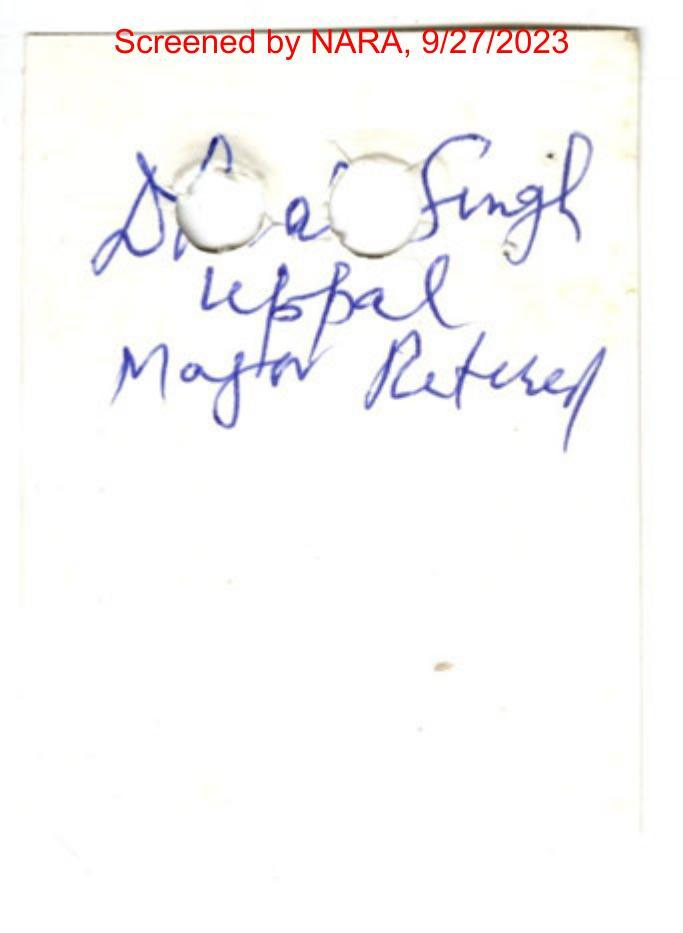 Screened by NARA, 9/27/2023
Singh
Uppal
Major Retired